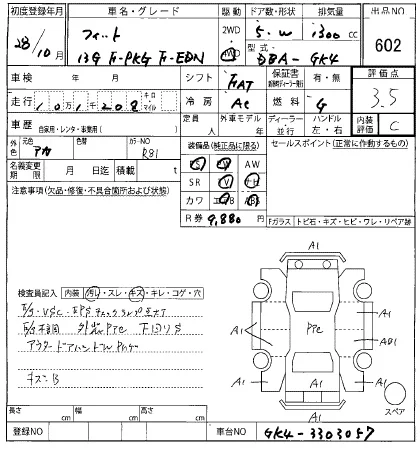 初度登録年月
28年10月
車名・グレード
フィット
13G F-PKG F-EDN
駆動
2WD
4WD
ドア数・形状
5・W
排気量
1300 cc
型式
DBA-GK4
出品NO
602
車検 年 月
シフト FAT
保証書
有・無
評価点
3.5
走行 101,208 キロ マイル
冷房 AC
燃料 G
車歴 自家用・レンタ・事業用( )
定員 人
外車モデル 年
ディーラー 並行
ハンドル 左・右
内装評価 C
外色 元色 アカ
色替
カラーNO R81
装備品(純正品に限る)
セールスポイント(正常に作動するもの)
名義変更期限 月 日迄
積載 t
PS PW AW
SR TV ナビ
カワ エアB ABS
R券 9,880円
注意事項(欠品・修復・不具合箇所および状態)
Fガラス トビ石・キズ・ヒビ・ワレ・リペア跡
検査員記入 内装 汚れ・スレ・キズ・キレ・コゲ・穴
アウタードアハンドル
キズB
A1
A1
A1
A1
A1
A1
AD1
A1
A1
スペア
長さ cm
幅 cm
高さ cm
登録NO
車台NO GK4-3303057